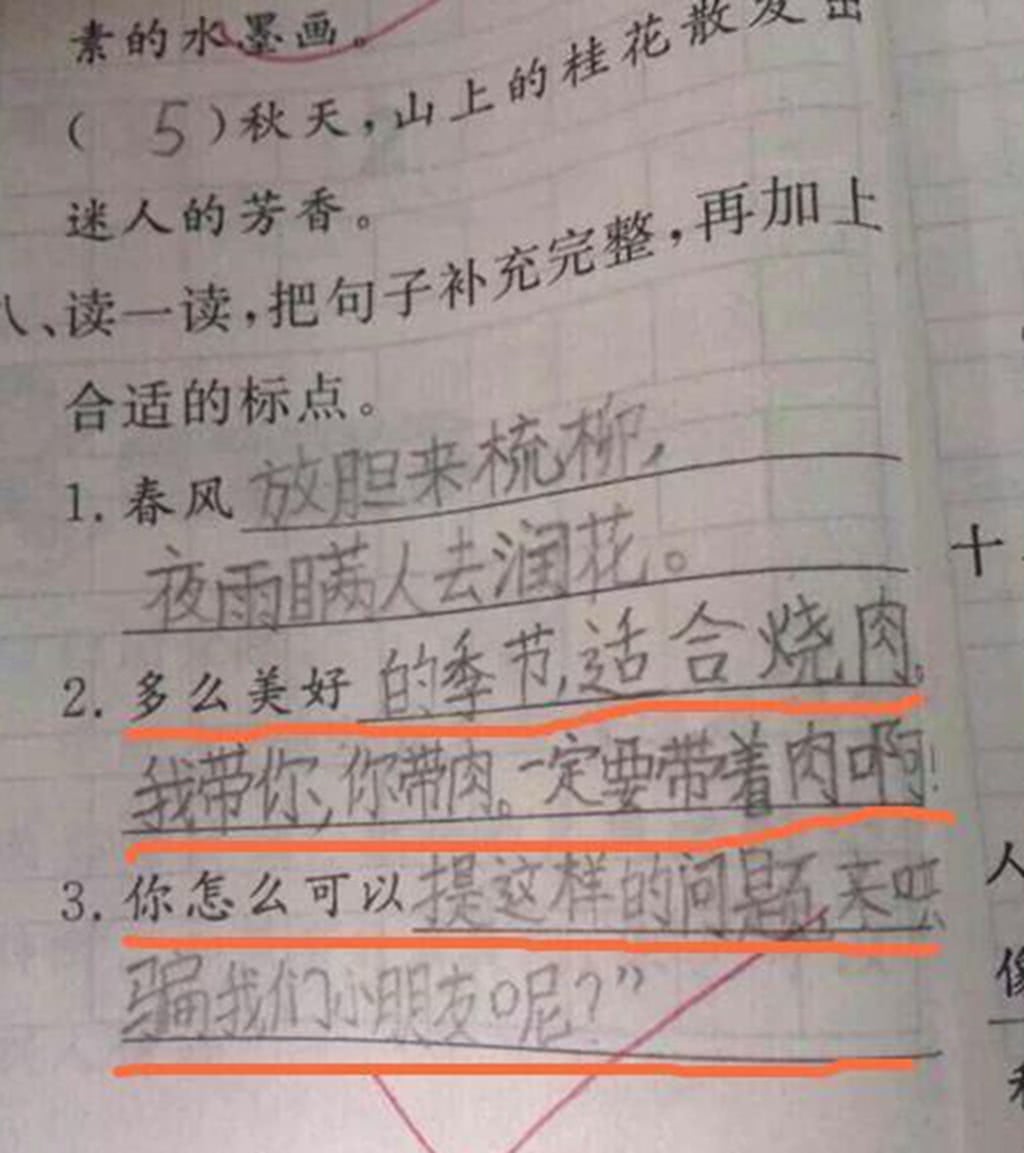 素的水墨画。
( 5 )秋天,山上的桂花散发出
迷人的芳香。
八、读一读,把句子补充完整,再加上
合适的标点。
1. 春风放胆来梳柳,
夜雨瞒人去润花。
2. 多么美好的季节,适合烧肉。
我带你,你带肉。一定要带着肉啊!
3. 你怎么可以提这样的问题,来哄
骗我们小朋友呢?”
十
人
像